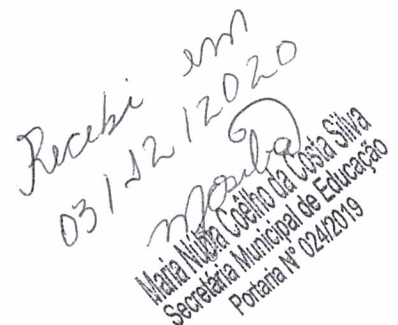 Recebi em
03/12/2020
Maria Núbia Coêlho da Costa Silva
Secretária Municipal de Educação
Portaria N° 024/2019